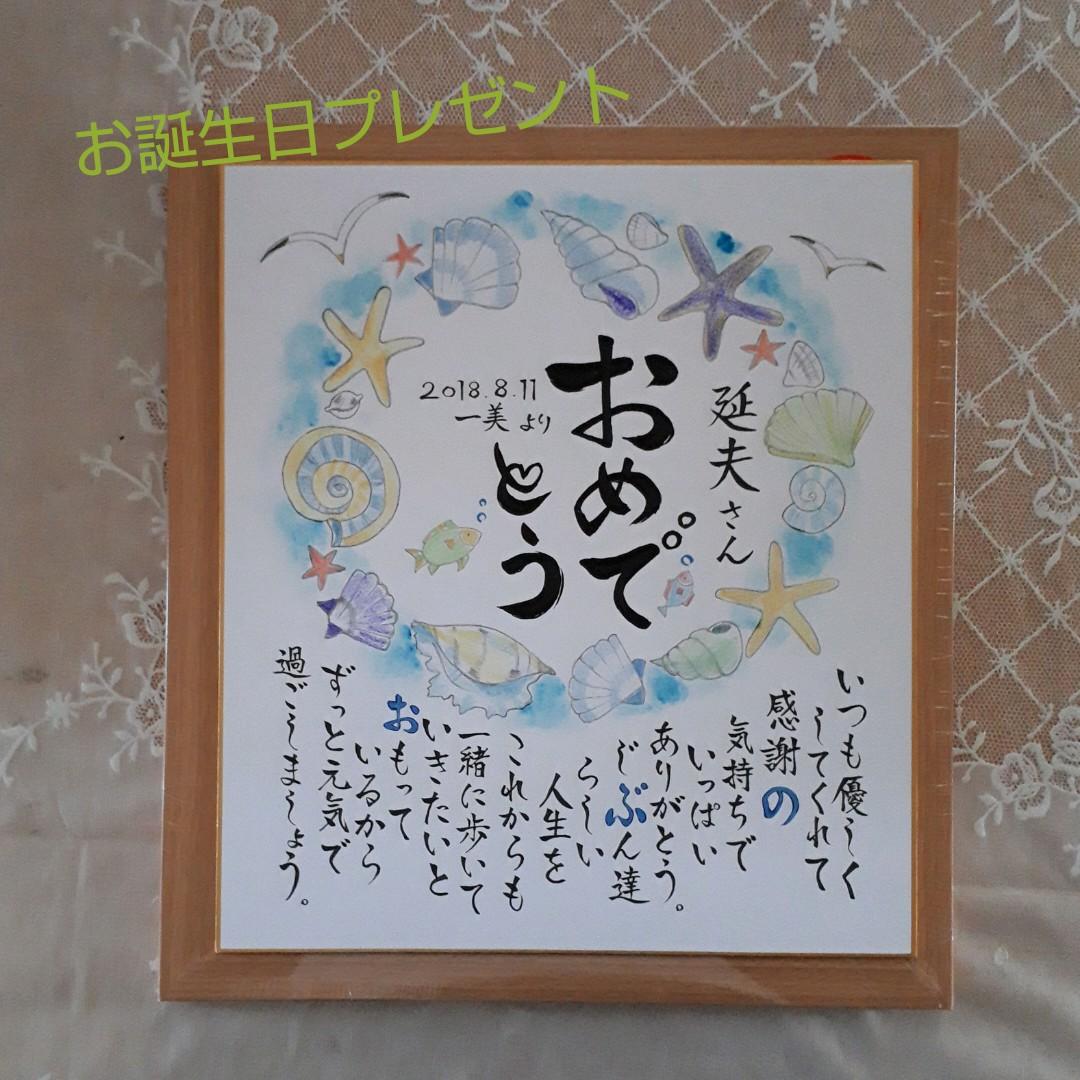 お誕生日プレゼント
延夫さん
おめで
とう
2018.8.11
一美より
いつも優しく
してくれて
感謝の
気持ちで
いっぱい
ありがとう。
じぶん達
らしい
人生を
これからも
一緒に歩いて
いきたいと
おもって
いるから
ずっと元気で
過ごしましょう。